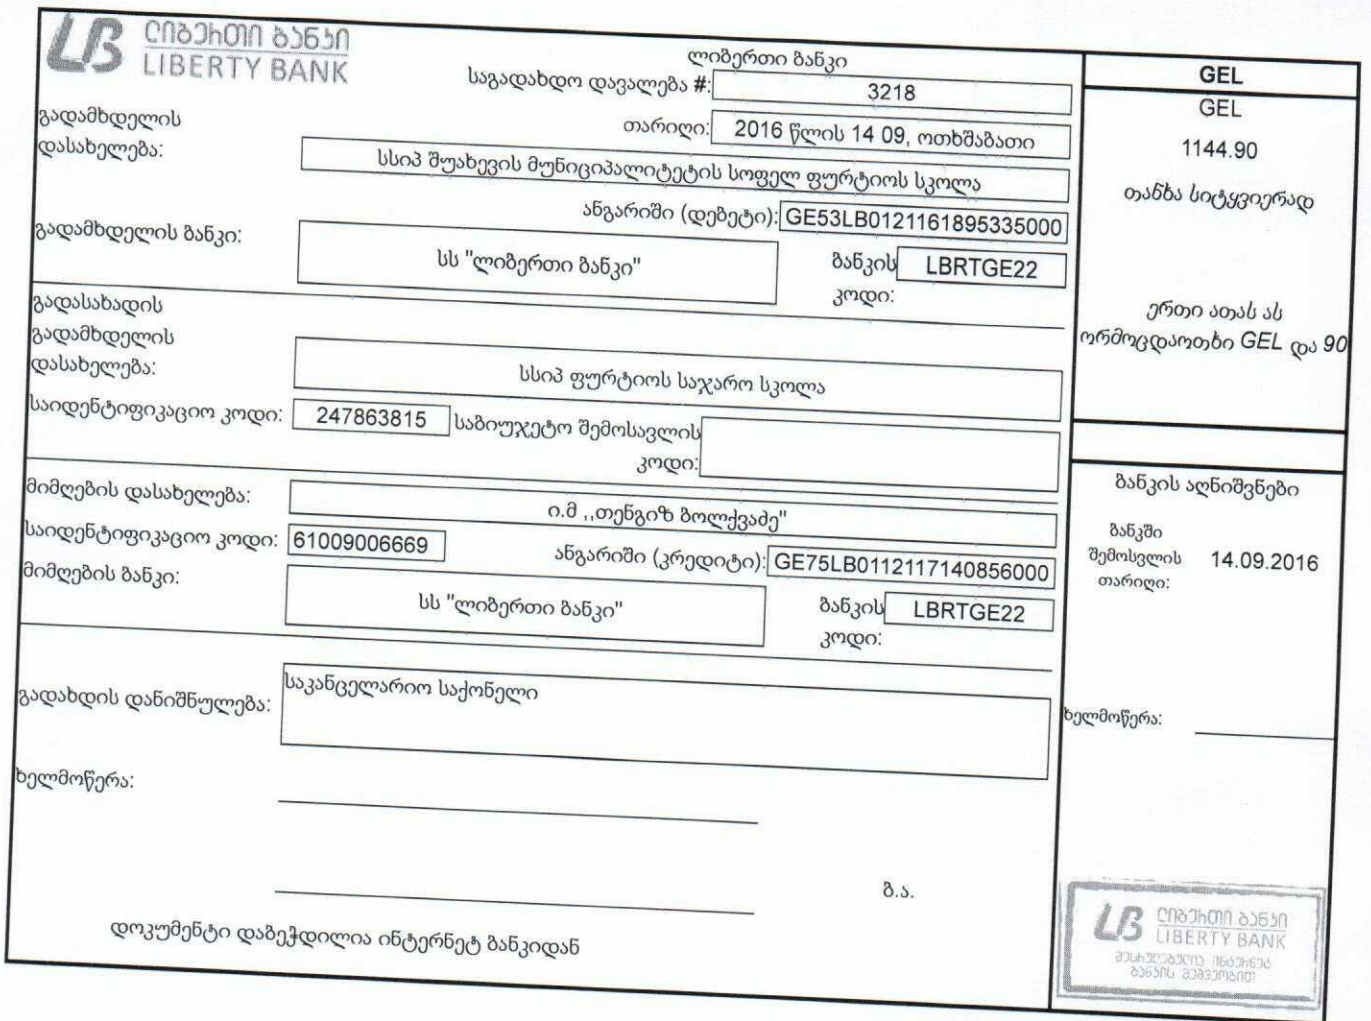 ლიბერთი ბანკი
LIBERTY BANK
ლიბერთი ბანკი
საგადახდო დავალება #: 3218
თარიღი: 2016 წლის 14 09, ოთხშაბათი
გადამხდელის
დასახელება: სსიპ შუახევის მუნიციპალიტეტის სოფელ ფურტიოს სკოლა
ანგარიში (დებეტი): GE53LB0121161895335000
გადამხდელის ბანკი: სს "ლიბერთი ბანკი" ბანკის კოდი: LBRTGE22
გადასახადის
გადამხდელის
დასახელება: სსიპ ფურტიოს საჯარო სკოლა
საიდენტიფიკაციო კოდი: 247863815 საბიუჯეტო შემოსავლის
კოდი:
მიმღების დასახელება: ი.მ ,,თენგიზ ბოლქვაძე"
საიდენტიფიკაციო კოდი: 61009006669 ანგარიში (კრედიტი): GE75LB0112117140856000
მიმღების ბანკი: სს "ლიბერთი ბანკი" ბანკის კოდი: LBRTGE22
გადახდის დანიშნულება: საკანცელარიო საქონელი
ხელმოწერა:
ბ.ა.
დოკუმენტი დაბეჭდილია ინტერნეტ ბანკიდან
GEL
GEL
1144.90
თანხა სიტყვიერად
ერთი ათას ას
ორმოცდაოთხი GEL და 90
ბანკის აღნიშვნები
ბანკში
შემოსვლის 14.09.2016
თარიღი:
ხელმოწერა:
ლიბერთი ბანკი
LIBERTY BANK
შესრულებულია ინტერნეტ
ბანკის მეშვეობით